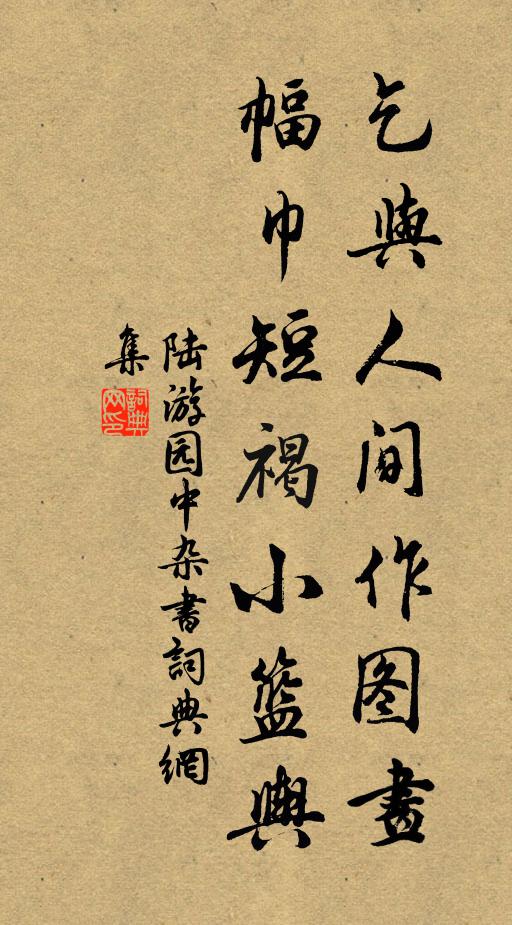 乞與人间作图畫
幅巾短褐小籃輿
陆游园中杂書詞典網
集
詞典网印